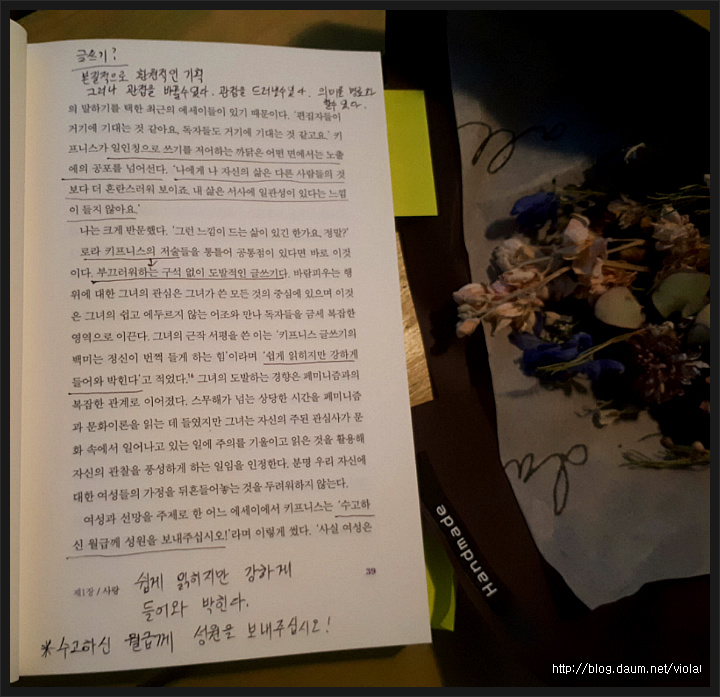 글쓰기?
본질적으로 환원적인 기획
그러나 관점을 바꿀수있다. 관점을 드러낼수있다. 의미를
할수 있다.
의 말하기를 택한 최근의 에세이들이 있기 때문이다. '편집자들이
거기에 기대는 것 같아요, 독자들도 거기에 기대는 것 같고요.' 키
프니스가 일인칭으로 쓰기를 저어하는 까닭은 어떤 면에서는 노출
에의 공포를 넘어선다. '나에게 나 자신의 삶은 다른 사람들의 것
보다 더 혼란스러워 보이죠. 내 삶은 서사에 일관성이 있다는 느낌
이 들지 않아요.'
나는 크게 반문했다. '그런 느낌이 드는 삶이 있긴 한가요, 정말?'
로라 키프니스의 저술들을 통틀어 공통점이 있다면 바로 이것
이다. 부끄러워하는 구석 없이 도발적인 글쓰기다. 바람피우는 행
위에 대한 그녀의 관심은 그녀가 쓴 모든 것의 중심에 있으며 이것
은 그녀의 쉽고 에두르지 않는 어조와 만나 독자들을 금세 복잡한
영역으로 이끈다. 그녀의 근작 서평을 쓴 이는 '키프니스 글쓰기의
백미는 정신이 번쩍 들게 하는 힘'이라며 '쉽게 읽히지만 강하게
들어와 박힌다'고 적었다.¹⁶ 그녀의 도발하는 경향은 페미니즘과의
복잡한 관계로 이어졌다. 스무해가 넘는 상당한 시간을 페미니즘
과 문화이론을 읽는 데 들였지만 그녀는 자신의 주된 관심사가 문
화 속에서 일어나고 있는 일에 주의를 기울이고 읽은 것을 활용해
자신의 관찰을 풍성하게 하는 일임을 인정한다. 분명 우리 자신에
대한 여성들의 가정을 뒤흔들어놓는 것을 두려워하지 않는다.
여성과 선망을 주제로 한 어느 에세이에서 키프니스는 '수고하
신 월급께 성원을 보내주십시오!'라며 이렇게 썼다. '사실 여성은
제1장 / 사랑
39
쉽게 읽히지만 강하게
들어와 박힌다.
※수고하신 월급께 성원을 보내주십시오!
Handmade
http://blog.daum.net/violal